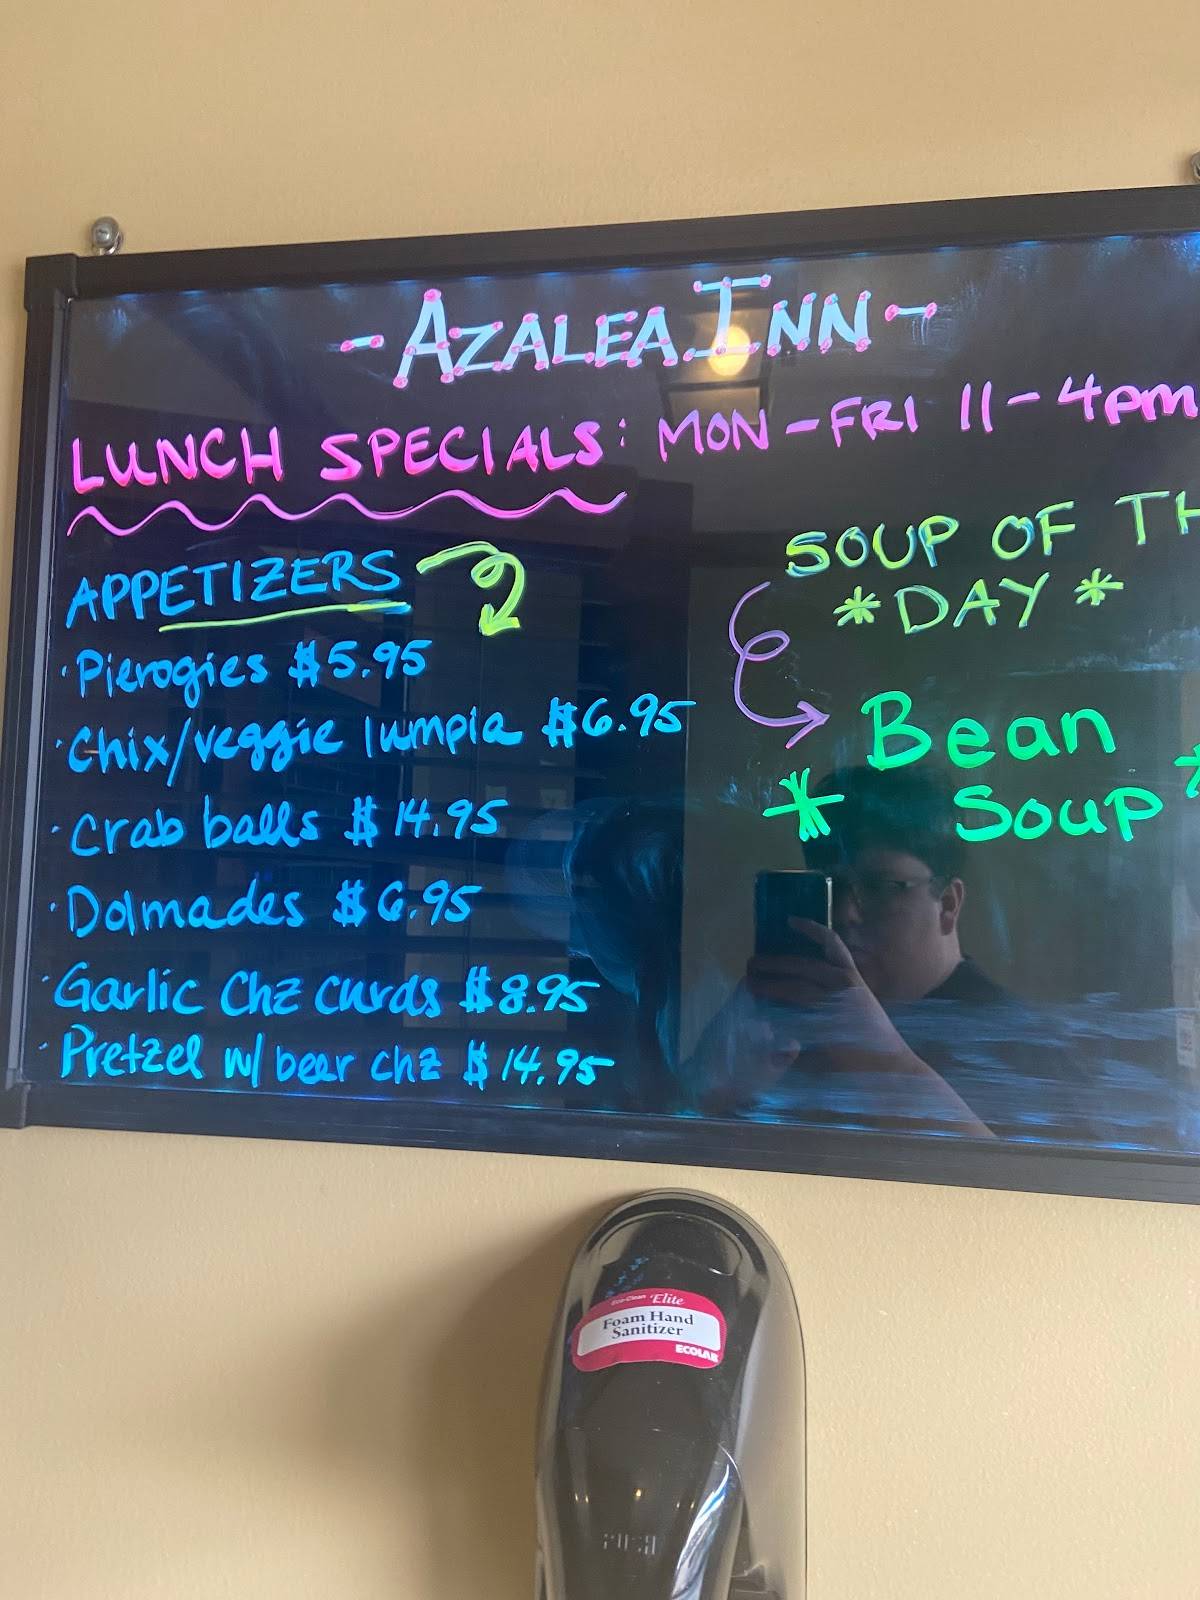 - AZALEA INN -
LUNCH SPECIALS: MON - FRI 11 - 4pm
APPETIZERS
· Pierogies $5.95
· Chix/veggie lumpia $6.95
· Crab balls $14.95
· Dolmades $6.95
· Garlic Chz curds $8.95
· Pretzel w/ beer chz $14.95
SOUP OF TH
* DAY *
Bean
* Soup *
Eco-Clean Elite
Foam Hand
Sanitizer
ECOLAB
PUSH